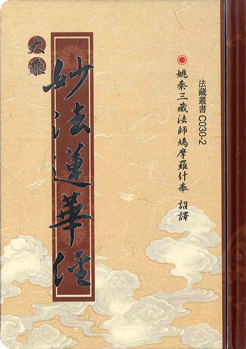 法藏叢書C030-2
姚秦三藏法師鳩摩羅什奉 詔譯
大乘
妙法蓮華經